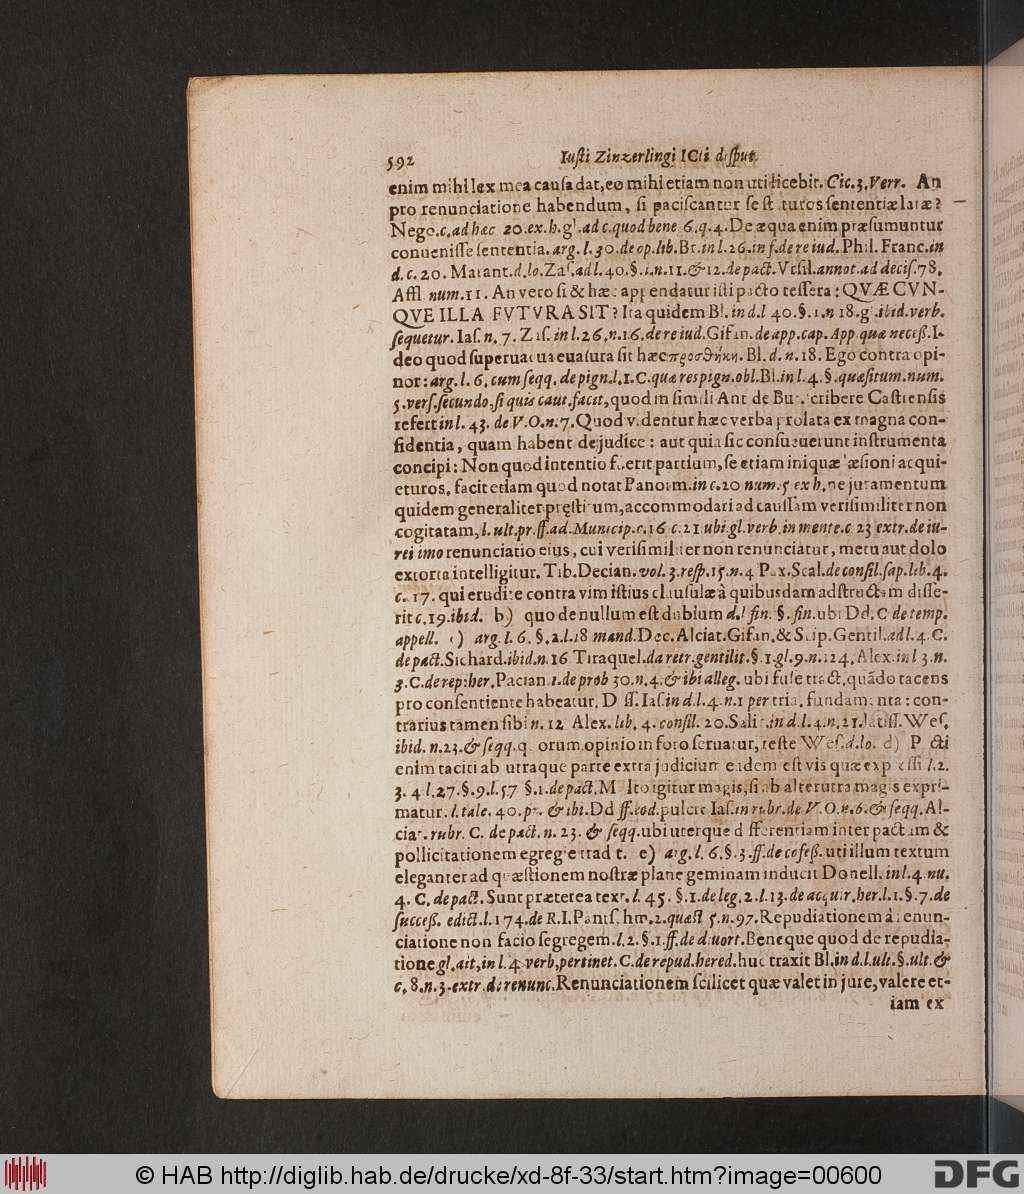 592 Iusti Zinzerlingi ICti disput.
enim mihi lex mea causa dat, eo mihi etiam non uti licebit. Cic. 3. Verr. An
pro renunciatione habendum, si paciscantur se staturos sententiæ latæ?
Nego. c. ad hæc 20. ex. h. gl. ad c. quod bene 6. q. 4. De æqua enim præsumuntur
conuenisse sententia. arg. l. 30. de op. lib. Br. in l. 26. in f. de re iud. Phil. Franc. in
d. c. 20. Marant. d. lo. Zas. ad l. 40. §. 1. n. 11. & 12. de pact. Vrsil. annot. ad decis. 78.
Affl. num. 11. An vero si & hæc appendatur isti pacto tessera: QVÆ CVN-
QVE ILLA FVTVRA SIT? Ita quidem Bl. in d. l 40. §. 1. n 18. gl. ibid. verb.
sequetur. Ias. n. 7. Zas. in l. 26. n. 16. de re iud. Gifan. de app. cap. App. quæ necess. I-
deo quod superuacua euasura sit hæc προσθήκη. Bl. d. n. 18. Ego contra opi-
nor: arg. l. 6. cum seqq. de pign. l. 1. C. quæ res pign. obl. Bl. in l. 4. §. quæsitum. num.
5. vers. secundo, si quis caut. facit, quod in simili Ant. de Butr. scribere Castrensis
refert in l. 43. de V. O. n. 7. Quod videntur hæc verba prolata ex magna con-
fidentia, quam habent de judice: aut quia sic consueuerunt instrumenta
concipi: Non quod intentio fuerit partium, se etiam iniquæ læsioni acqui-
eturos. facit etiam quod notat Panorm. in c. 20 num. 5 ex h. ne juramentum
quidem generaliter pręstitum, accommodari ad caussam verisimiliter non
cogitatam, l. ult. pr. ff. ad. Municip. c. 16 c. 21 ubi gl. verb. in mente. c 23 extr. de iu-
rei imo renunciatio eius, cui verisimiliter non renunciatur, metu aut dolo
extorta intelligitur. Tib. Decian. vol. 3. resp. 15. n. 4 Pax. Scal. de consil. sap. lib. 4.
c. 17. qui erudite contra vim istius clausulæ à quibusdam adstructam disse-
rit c. 19. ibid. b) quo de nullum est dubium d. l fin. §. fin. ubi Dd. C de temp.
appell. c) arg. l. 6. §. 2. l. 18 mand. Dec. Alciat. Gifan. & Scip. Gentil. ad l. 4. C.
de pact. Sichard. ibid. n. 16 Tiraquel. da retr. gentilit. §. 1. gl. 9. n. 124. Alex. in l 3. n.
3. C. de rep. her. Pacian. 1. de prob 30. n. 4. & ibi alleg. ubi fuse tract. quãdo tacens
pro consentiente habeatur. D ff. Ias. in d. l. 4. n. 1 per tria. fundamenta: con-
trarius tamen sibi n. 12 Alex. lib. 4. consil. 20. Salic. in d. l. 4. n. 21. latiss. Wes.
ibid. n. 23. & seqq. quorum opinio in foro seruatur, teste Wes. d. lo. d) Pacti
enim taciti ab utraque parte extra judicium eadem est vis quæ expressi l. 2.
3. 4 l. 27. §. 9. l. 57 §. 1. de pact. Multo igitur magis, si ab alterutra magis expri-
matur. l. tale. 40. pr. & ibi. Dd ff. eod. pulcre Ias. in rubr. de V. O. n. 6. & seqq. Al-
ciat. rubr. C. de pact. n. 23. & seqq. ubi uterque differentiam inter pactum &
pollicitationem egregie tradit. e) arg. l. 6. §. 3. ff. de cofess. uti illum textum
eleganter ad quæstionem nostræ plane geminam inducit Donell. in l. 4. nu.
4. C. de pact. Sunt præterea text. l. 45. §. 1. de leg. 2. l. 13. de acquir. her. l. 1. §. 7. de
success. edict. l. 174. de R. I. Pantsh. 2. quæst 5. n. 97. Repudiationem à renun-
ciatione non facio segregem. l. 2. §. 1. ff. de diuort. Bene que quod de repudia-
tione gl. ait, in l. 4. verb. pertinet. C. de repud. hered. huc traxit Bl. in d. l. ult. §. ult. &
c. 8. n. 3. extr. de renunc. Renunciationem scilicet quæ valet in jure, valere et-
iam ex
© HAB http://diglib.hab.de/drucke/xd-8f-33/start.htm?image=00600
DFG